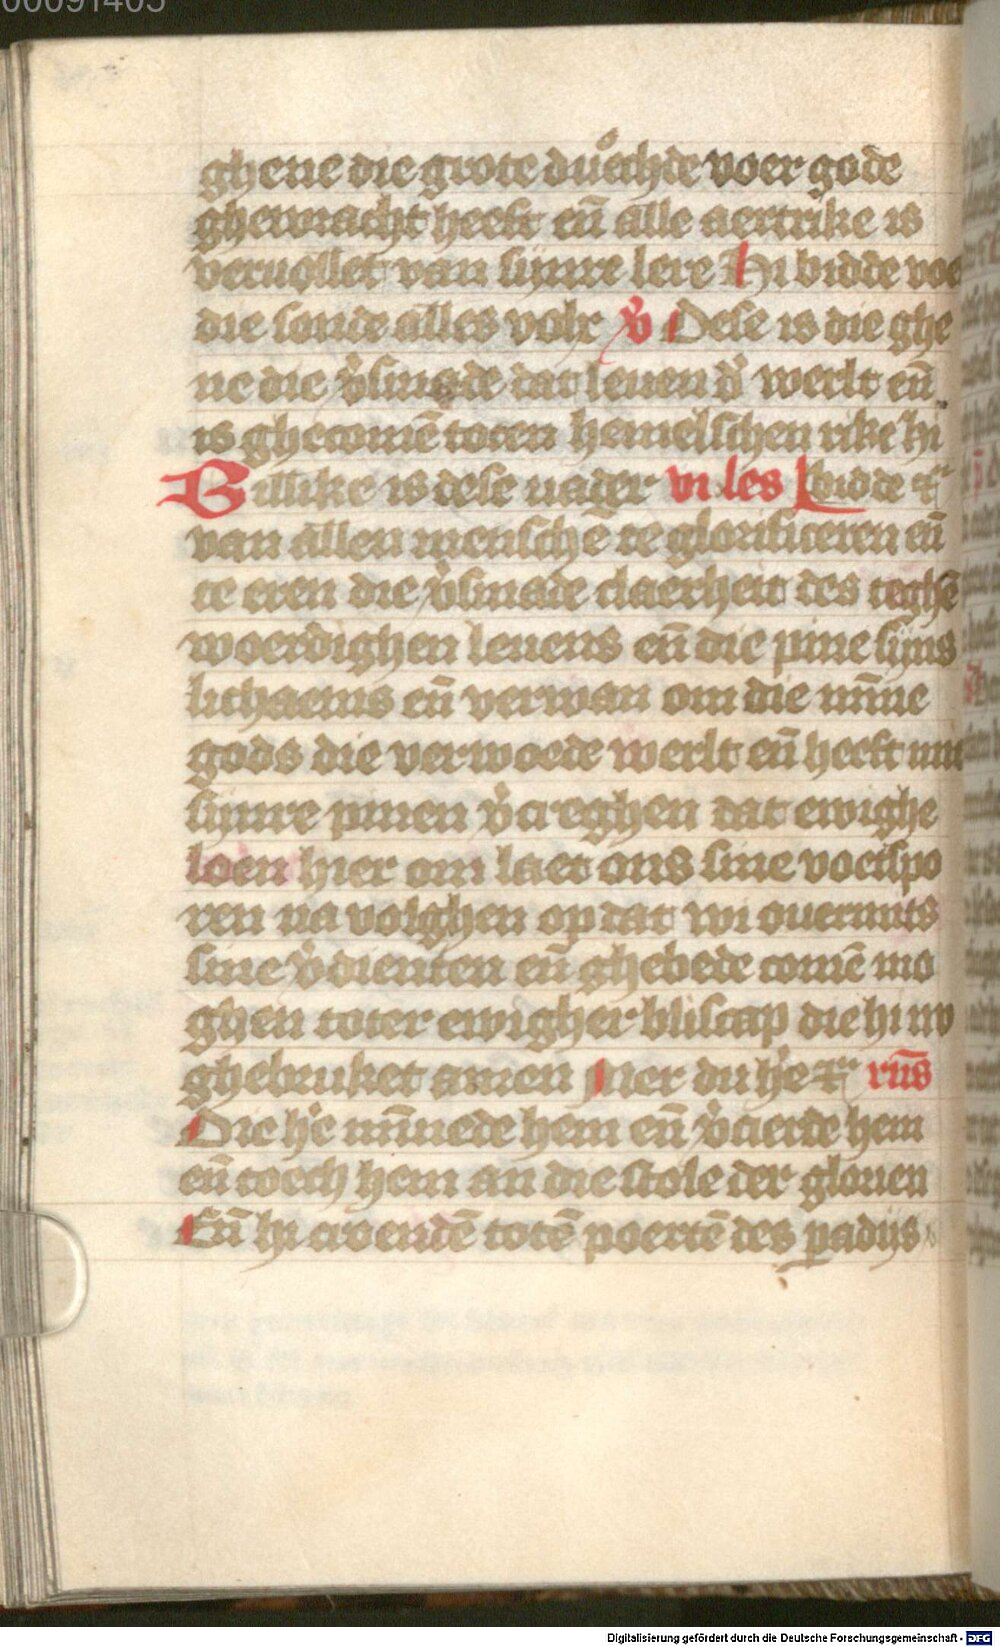 00091405
ghene die grote duechde voer gode
ghewracht heeft eñ alle aertrike is
veruollet van sijnre lere Hi bidde voe
die sonde alles volx v̾ Dese is die ghe
ne die v̾smade dat leuen d̾ werlt eñ
is ghecomē toten hemelschen rike hi
Billike is dese uader vi les bidde
van allen menschē te glorificeren eñ
te eren die v̾smade claerheit des teghē
woerdighen leuens eñ die pine sijns
lichaems eñ verwan om die mīne
gods die verwoede werlt eñ heeft mit
sijnre pinen v̾creghen dat ewighe
loen hier om laet ons sine voetspo
ren na volghen op dat wi ouermits
sine v̾dienten eñ ghebede comē mo
ghen toter ewigher bliscap die hi nv
ghebruket amen Mer du h̾e rn̄s
Die h̾e mīnnede hem eñ v̾cierde hem
eñ toech hem an die stole der glorien
Eñ hi croendē totē poertē des padijs
Digitalisierung gefördert durch die Deutsche Forschungsgemeinschaft - DFG